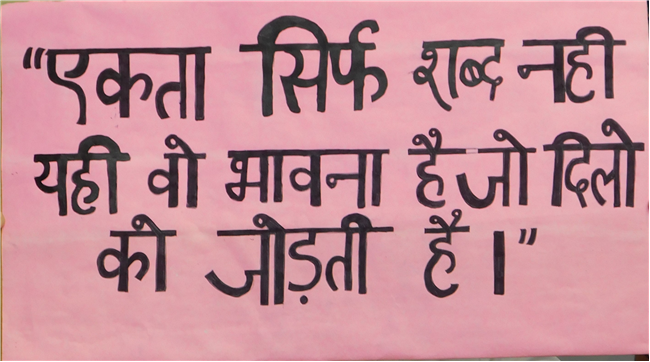 "एकता सिर्फ शब्द नही
यही वो भावना है जो दिलो
को जोड़ती है।"